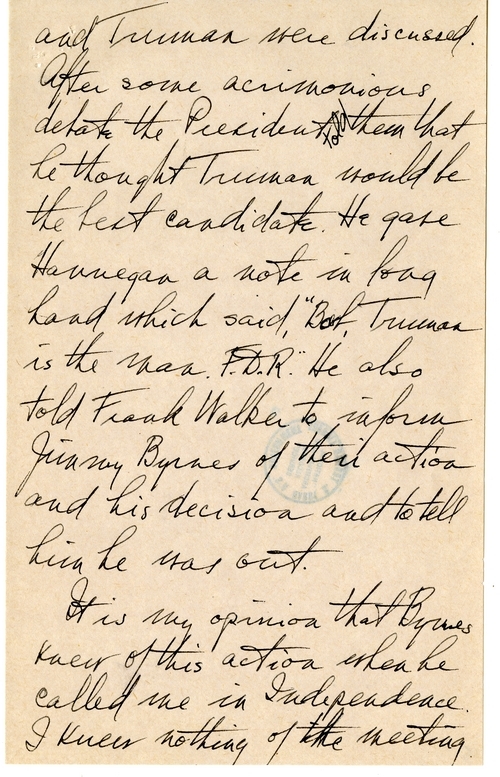 and Truman were discussed.
After some acrimonious
debate the President told them that
he thought Truman would be
the best candidate. He gave
Hannegan a note in long
hand which said, "Bob, Truman
is the man. F.D.R." He also
told Frank Walker to inform
Jimmy Byrnes of their action
and his decision and to tell
him he was out.
It is my opinion that Byrnes
knew of this action when he
called me in Independence.
I knew nothing of the meeting